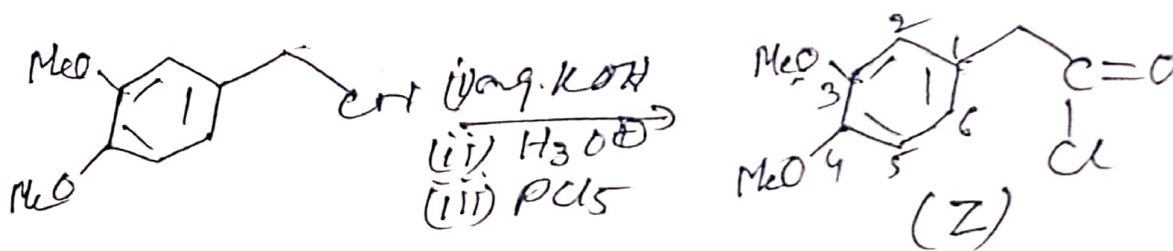 MeO
MeO
CN
(i) aq. KOH
(ii) H3O⊕
(iii) PCl5
MeO
MeO
1
2
3
4
5
6
C=O
Cl
(Z)